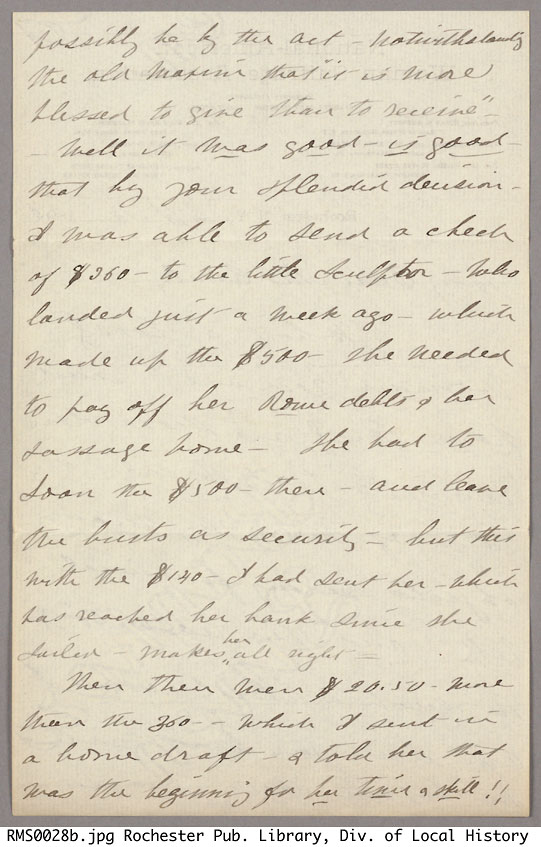 possibly be by the act - notwithstanding
the old maxim that "it is more
blessed to give than to receive" -
- Well it was good - is good -
that by your splendid decision -
I was able to send a check
of $360 - to the little sculptor - who
landed just a week ago - which
made up the $500 she needed
to pay off her Rome debts & her
passage home - She had to
loan the $500 - there - and leave
the busts as security - but this
with the $140 - I had sent her - which
has reached her bank since she
sailed - makes her all right -
Then there were $20.50 - more
than the 360 - - which I sent in
a home draft - & told her that
was the beginning for her time & skill !!
RMS0028b.jpg Rochester Pub. Library, Div. of Local History